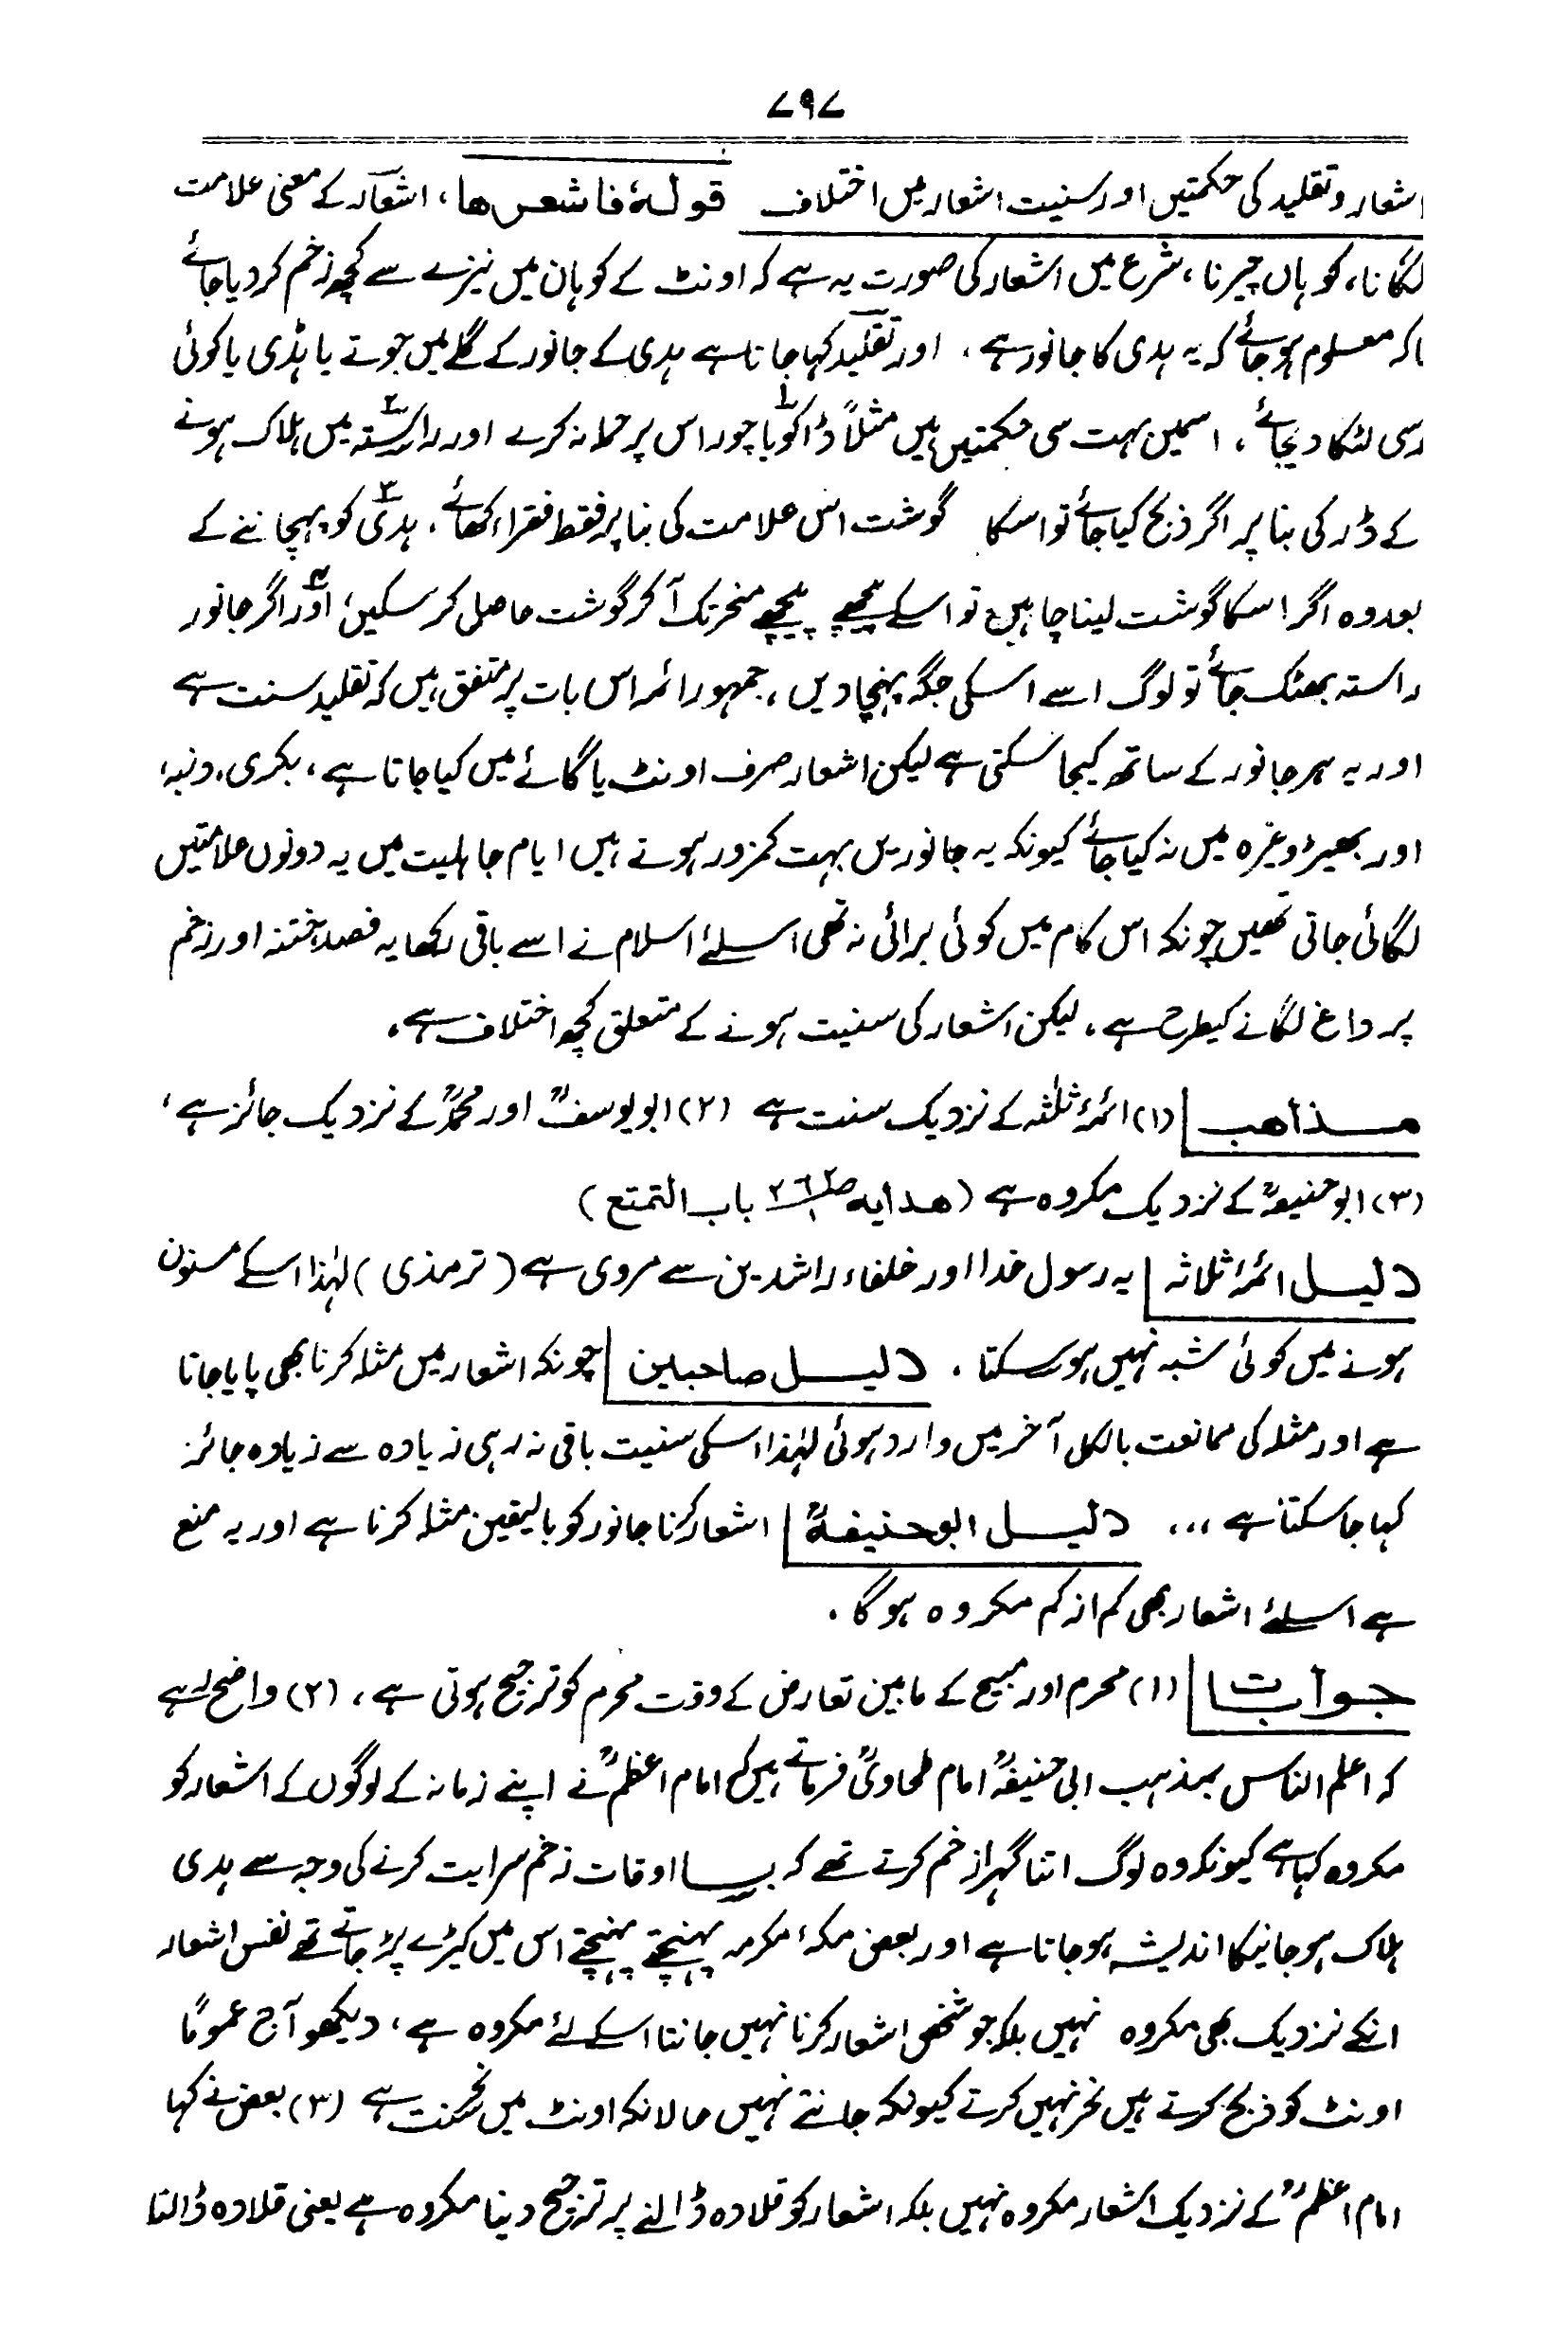 ۷۹۷
اشعار وتقلید کی حکمتیں اور سنیت اشعار میں اختلاف قولہٗ فاشعرھا، اشعار کے معنی علامت
لگانا، کوہان چیرنا، شرع میں اشعار کی صورت یہ ہے کہ اونٹ کے کوہان میں نیزے سے کچھ زخم کردیا جائے
تاکہ معلوم ہوجائے کہ یہ ہدی کا جانور ہے، اور تقلید کہا جاتا ہے ہدی کے جانور کے گلے میں جوتے یا ہڈی یا کوئی
رسی لٹکا دیجائے، اسمیں بہت سی حکمتیں ہیں مثلاً ۱ ڈاکو یا چور اس پر حملہ نہ کرے اور ۲ راستہ میں ہلاک ہونے
کے ڈر کی بنا پر اگر ذبح کیا جائے تو اسکا گوشت اس علامت کی بنا پر فقط فقراء کھائے، ۳ ہدی کو پہچاننے کے
بعد وہ اگر اسکا گوشت لینا چاہیں تو اسکے پیچھے پیچھے منحر تک آکر گوشت حاصل کرسکیں، ۴ اور اگر جانور
راستہ بھٹک جائے تو لوگ اسے اسکی جگہ پہنچا دیں، جمہور ائمہ اس بات پر متفق ہیں کہ تقلید سنت ہے
اور یہ ہر جانور کے ساتھ کیجا سکتی ہے لیکن اشعار صرف اونٹ یا گائے میں کیا جاتا ہے، بکری، دنبہ،
اور بھیڑ وغیرہ میں نہ کیا جائے کیونکہ یہ جانوریں بہت کمزور ہوتے ہیں ایام جاہلیت میں یہ دونوں علامتیں
لگائی جاتی تھیں چونکہ اس کام میں کوئی برائی نہ تھی اسلئے اسلام نے اسے باقی رکھا یہ فصد، ختنہ اور زخم
پر داغ لگانے کیطرح ہے، لیکن اشعار کی سنیت ہونے کے متعلق کچھ اختلاف ہے،
مذاھب (۱) ائمۂ ثلٰثہ کے نزدیک سنت ہے (۲) ابویوسفؒ اور محمدؒ کے نزدیک جائز ہے،
(۳) ابوحنیفہؒ کے نزدیک مکروہ ہے (ھدایہ ص۲۶۲ ج۱ باب التمتع)
دلیل ائمۂ ثلاثہ یہ رسول خدا اور خلفاء راشدین سے مروی ہے (ترمذی) لہٰذا اسکے مسنون
ہونے میں کوئی شبہ نہیں ہوسکتا، دلیل صاحبین چونکہ اشعار میں مثلہ کرنا بھی پایا جاتا
ہے اور مثلہ کی ممانعت بالکل آخر میں وارد ہوئی لہٰذا اسکی سنیت باقی نہ رہی زیادہ سے زیادہ جائز
کہا جاسکتا ہے ،،، دلیل ابوحنیفہؒ اشعار کرنا جانور کو بالیقین مثلہ کرنا ہے اور یہ منع
ہے اسلئے اشعار بھی کم از کم مکروہ ہوگا،
جوابات (۱) محرم اور مبیح کے مابین تعارض کے وقت محرم کو ترجیح ہوتی ہے، (۲) واضح رہے
کہ اعلم الناس بمذہب ابی حنیفہؒ امام طحاویؒ فرماتے ہیں کہ امام اعظمؒ نے اپنے زمانہ کے لوگوں کے اشعار کو
مکروہ کہا ہے کیونکہ وہ لوگ اتنا گہرا زخم کرتے تھے کہ بسا اوقات زخم سرایت کرنے کی وجہ سے ہدی
ہلاک ہوجانیکا اندیشہ ہوجاتا ہے اور بعض مکۂ مکرمہ پہنچتے پہنچتے اس میں کیڑے پڑ جاتے تھے نفس اشعار
انکے نزدیک بھی مکروہ نہیں بلکہ جو شخص اشعار کرنا نہیں جانتا اسکے لئے مکروہ ہے، دیکھو آج عموماً
اونٹ کو ذبح کرتے ہیں نحر نہیں کرتے کیونکہ جانتے نہیں حالانکہ اونٹ میں نحر سنت ہے (۳) بعض نے کہا
امام اعظمؒ کے نزدیک اشعار مکروہ نہیں بلکہ اشعار کو قلادہ ڈالنے پر ترجیح دینا مکروہ ہے یعنی قلادہ ڈالنا